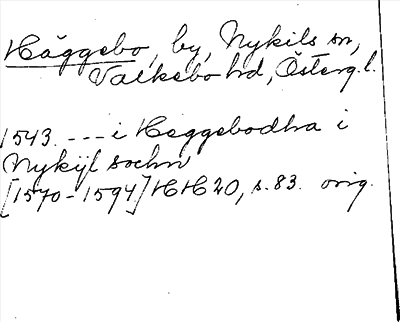 Häggebo, by, Nykils sn,
Valkebo hd, Österg.l.
1543. --- i Heggebodhra i
Nykijl sochn
[1570-1594] HH20, s. 83. orig.